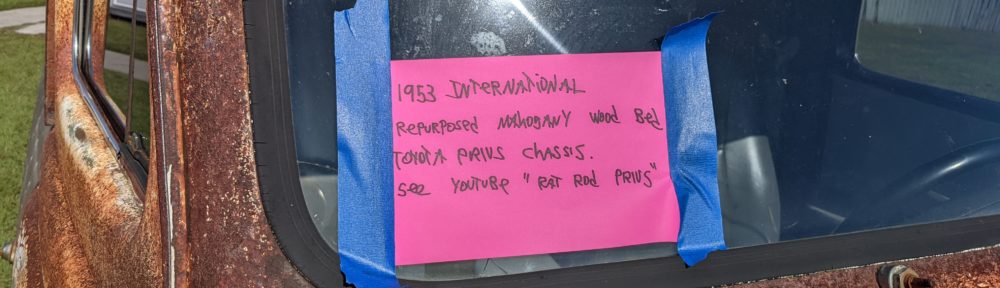 1953 INTERNATIONAL
REPURPOSED MAHOGANY WOOD BED
TOYOTA PRIUS CHASSIS.
SEE YOUTUBE "RAT ROD PRIUS"